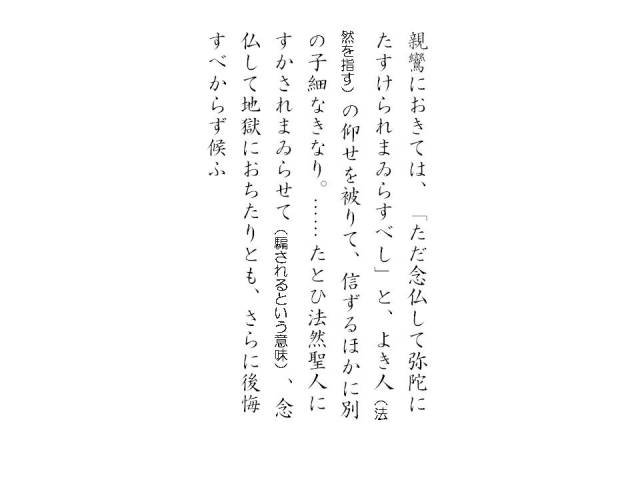 親鸞におきては、「ただ念仏して弥陀に
たすけられまゐらすべし」と、よき人（法
然を指す）の仰せを被りて、信ずるほかに別
の子細なきなり。……たとひ法然聖人に
すかされまゐらせて（騙されるという意味）、念
仏して地獄におちたりとも、さらに後悔
すべからず候ふ